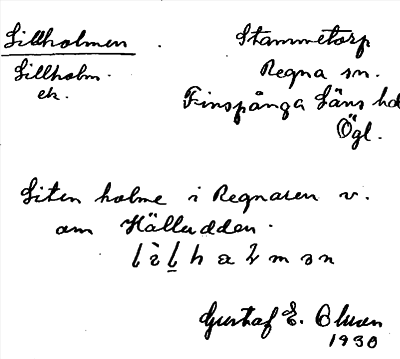 Lillholmen Stammetorp
Lillholm. Regna sn.
ek. Finspånga Läns hd
Ögl.
Liten holme i Regnaren v.
om Hälludden.
Gustaf E. Olsson
1930